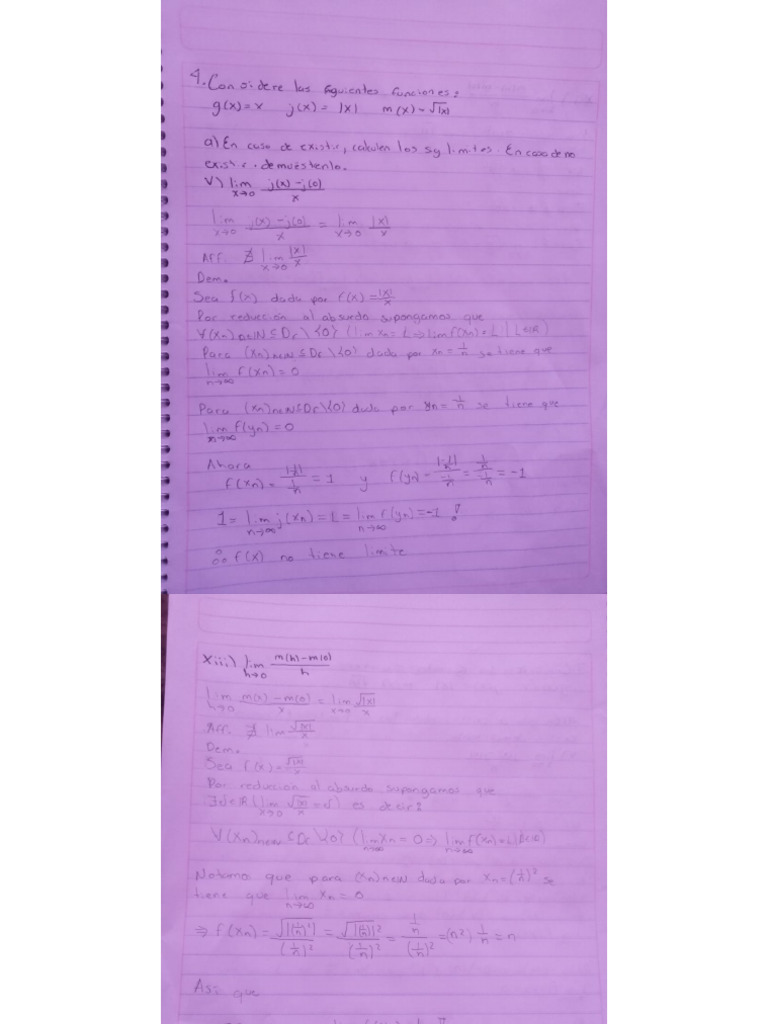 4. Considere las siguientes funciones:
g(x)=x j(x)=|x| m(x)=√|x|
a) En caso de existir, calculen los sig limites. En caso de no
existir, demuéstenlo.
V) lim x→0 j(x)-j(0) / x
lim x→0 j(x)-j(0) / x = lim x→0 |x| / x
Aff. ∄ lim x→0 |x| / x
Dem.
Sea f(x) dada por f(x) = |x| / x
Por reducción al absurdo supongamos que
∀(xn)n∈N ⊆ Df \ {0} (lim xn = L ⇒ lim f(xn) = L | L∈R)
Para (xn)n∈N ⊆ Df \ {0} dada por xn = 1/n se tiene que
lim n→∞ f(xn) = 0
Para (xn)n∈N ⊆ Df \ {0} dada por yn = -1/n se tiene que
lim n→∞ f(yn) = 0
Ahora
f(xn) = |1/n| / 1/n = 1 y f(yn) = |-1/n| / -1/n = 1/n / -1/n = -1
1 = lim n→∞ j(xn) = L = lim n→∞ f(yn) = -1 !
∴ f(x) no tiene limite
xiii) lim h→0 m(h)-m(0) / h
lim h→0 m(x)-m(0) / x = lim x→0 √|x| / x
Aff. ∄ lim √|x| / x
Dem.
Sea f(x) = √|x| / x
Por reducción al absurdo supongamos que
∃ l∈R (lim x→0 √|x| / x = l) es decir:
∀(xn)n∈N ⊆ Df \ {0} (lim n→∞ xn = 0 ⇒ lim n→∞ f(xn) = L
Notamo que para (xn)n∈N dada por xn = (1/n)² se
tiene que lim n→∞ xn = 0
⇒ f(xn) = √|(1/n)²| / (1/n)² = √|(1/n)|² / (1/n)² = 1/n / (1/n)² = (n²) 1/n = n
Asi que